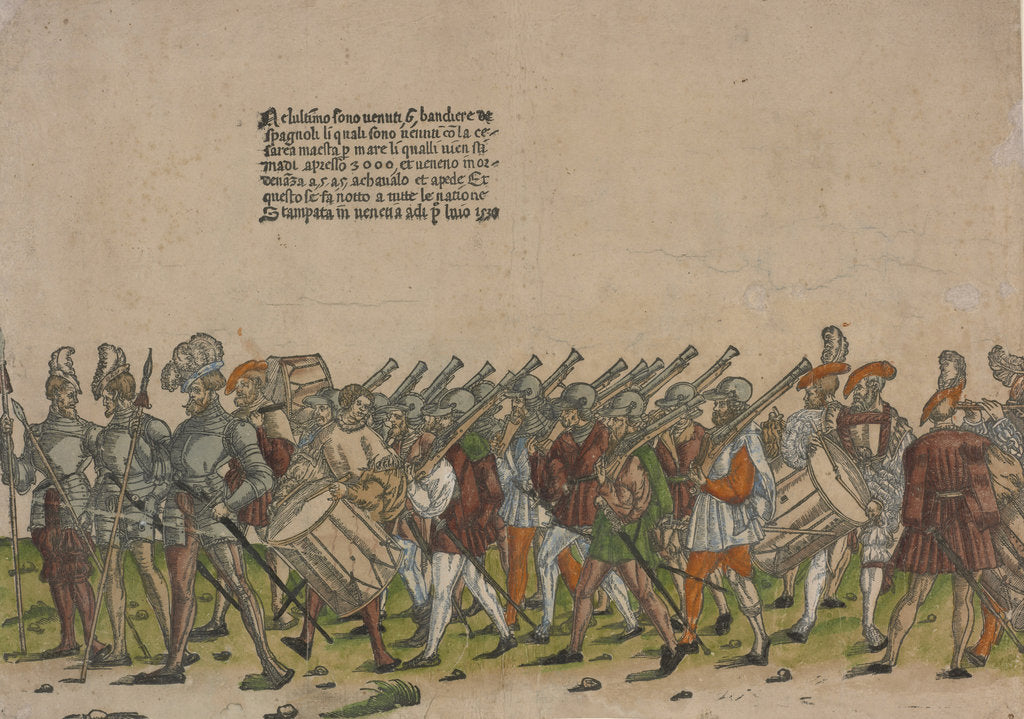 Nelultimo sono venuti 6, bandiere de
spagnoli li quali sono venuti cō la ce-
sarea maesta p mare li qualli vien sti
madi apresso 3000, et veneno in or-
denāza a,5,a,5, achavalo et apede Et
questo se fa notto a tutte le natione
Stampata in venetia adi p̄ luio 1530